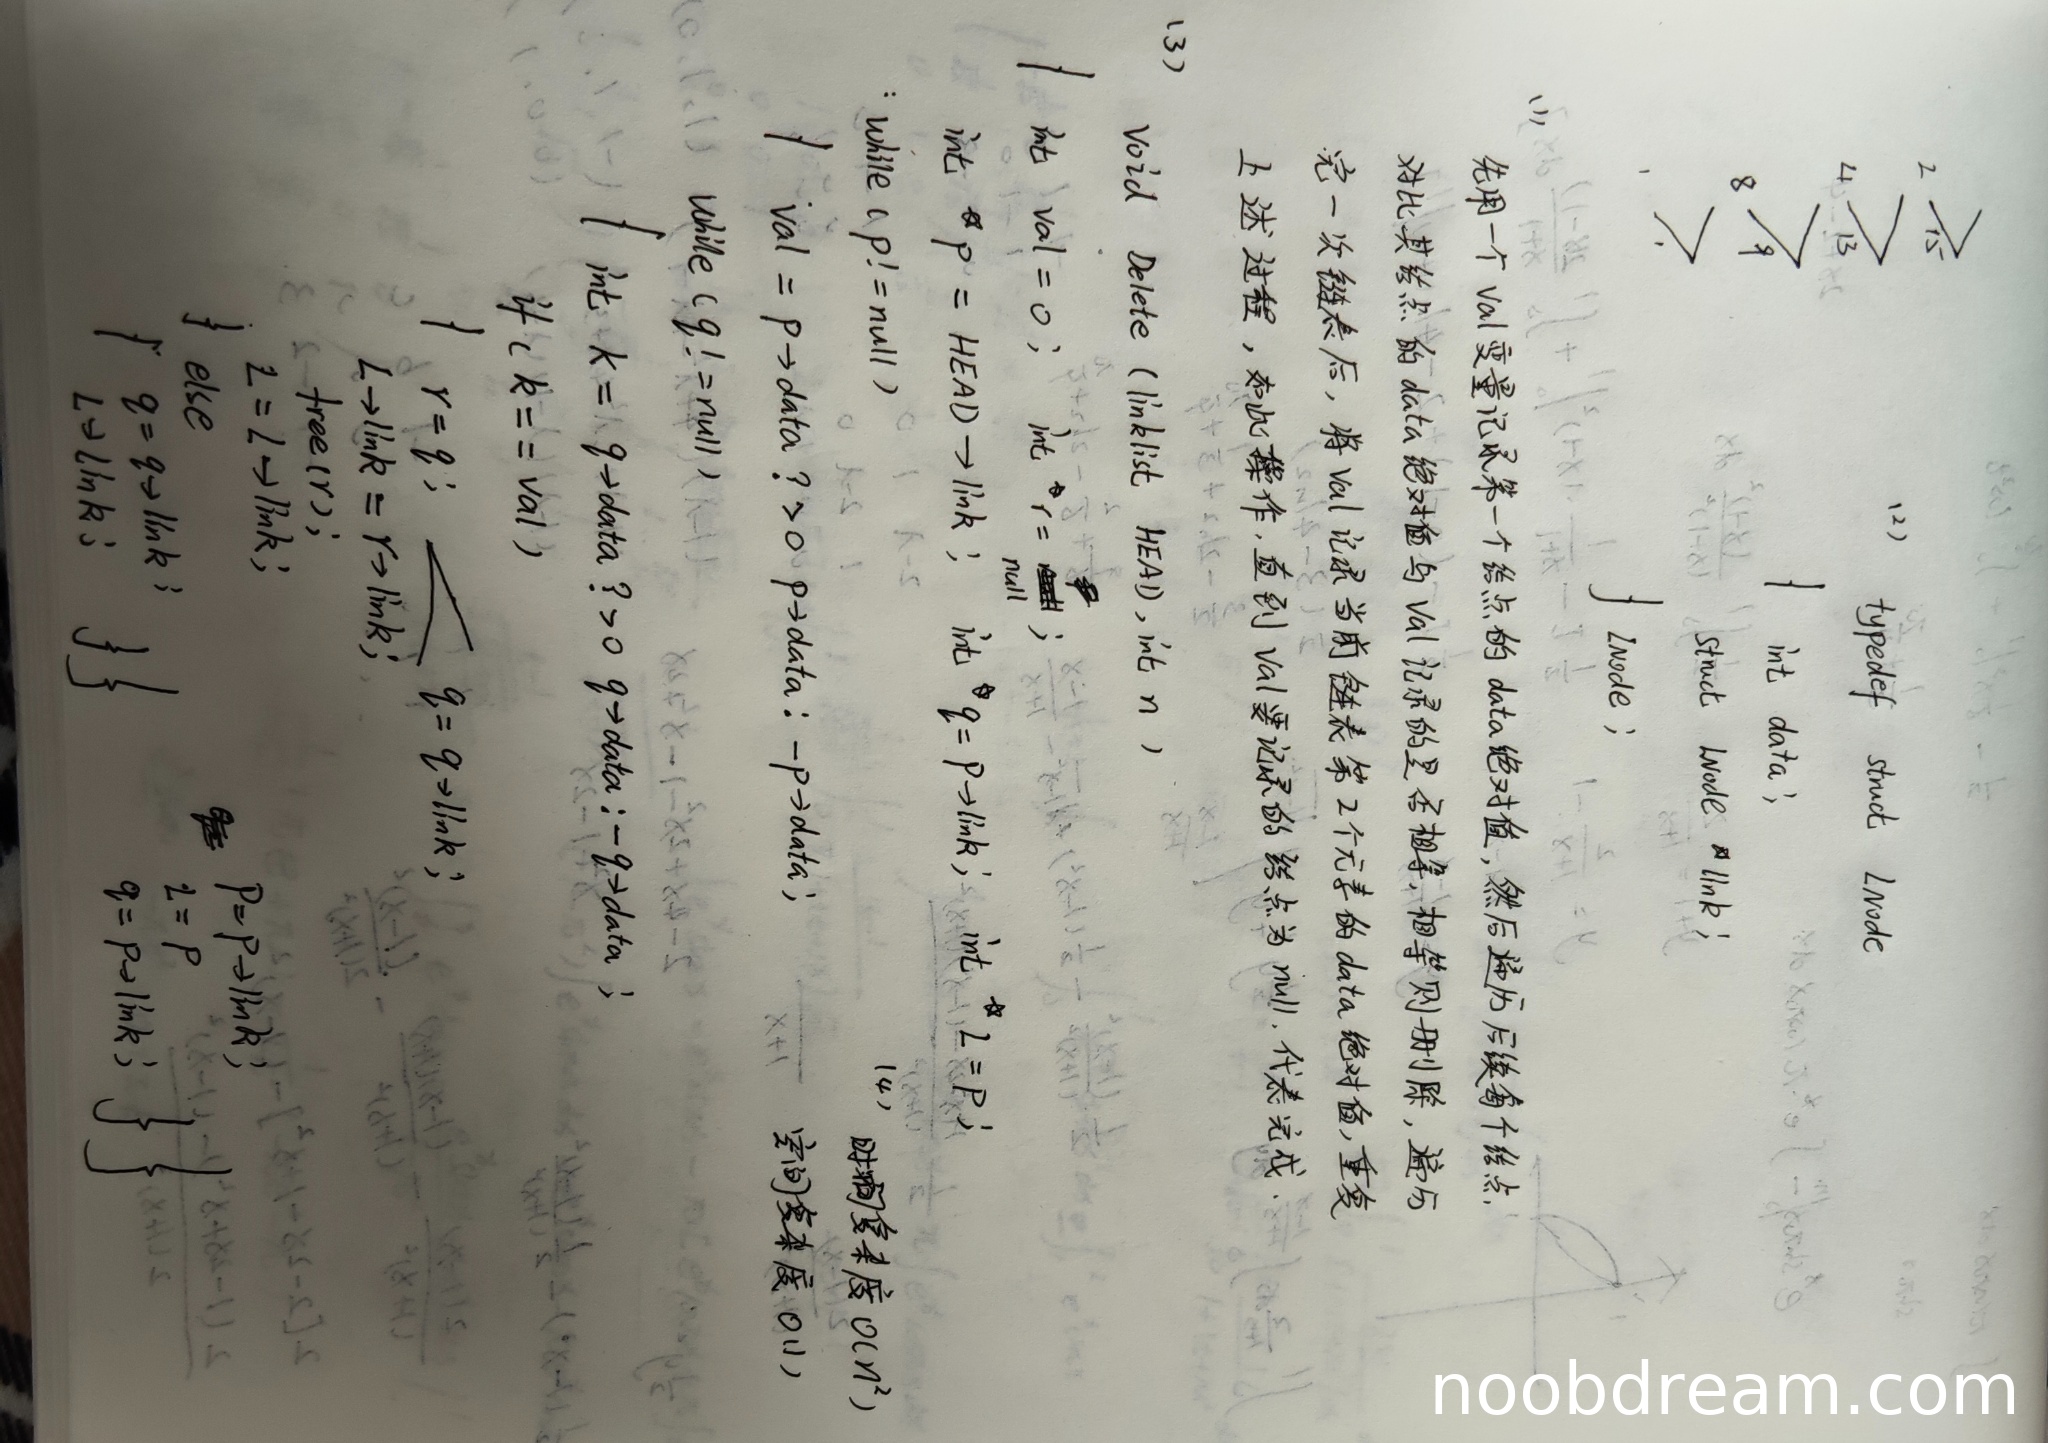 2
15
4
13
8
9
1
(2) typedef struct Lnode
{ int data;
struct Lnode *link;
} Lnode;
(1) 先用一个val变量记录第一个结点的data绝对值，然后遍历后续每个结点，
对比其结点的data绝对值与val记录的是否相等，相等则删除，遍历
完一次链表后，将val记录当前链表第2个元素的data绝对值，重复
上述过程，如此操作，直到val要记录的结点为null，代表完成.
(3) void Delete (linklist HEAD, int n)
{ int val = 0; int *r = null;
int *p = HEAD→link; int *q = p→link; int *L = p;
while (p != null)
{ val = p→data ? >0 p→data : -p→data;
while (q != null)
{ int k = q→data ? >0 q→data : -q→data;
if (k == val)
{ r = q; q = q→link;
L→link = r→link;
free(r);
L = L→link;
} else
{ q = q→link;
L→link; }}
p = p→link;
L = p
q = p→link; }}}
(4) 时间复杂度 O(n²)
空间复杂度 O(1)
noobdream.com